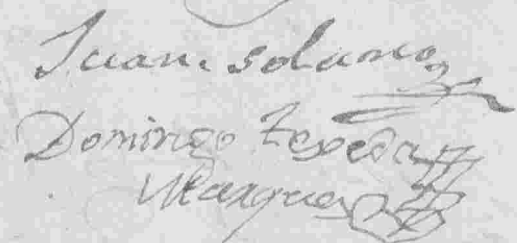 Juan solano
Domingo Zepeda
Marques